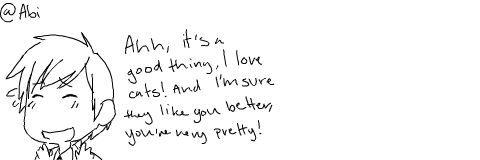 @Abi
Ahh, it's a
good thing, I love
cats! And I'm sure
they like you better,
you're very pretty!